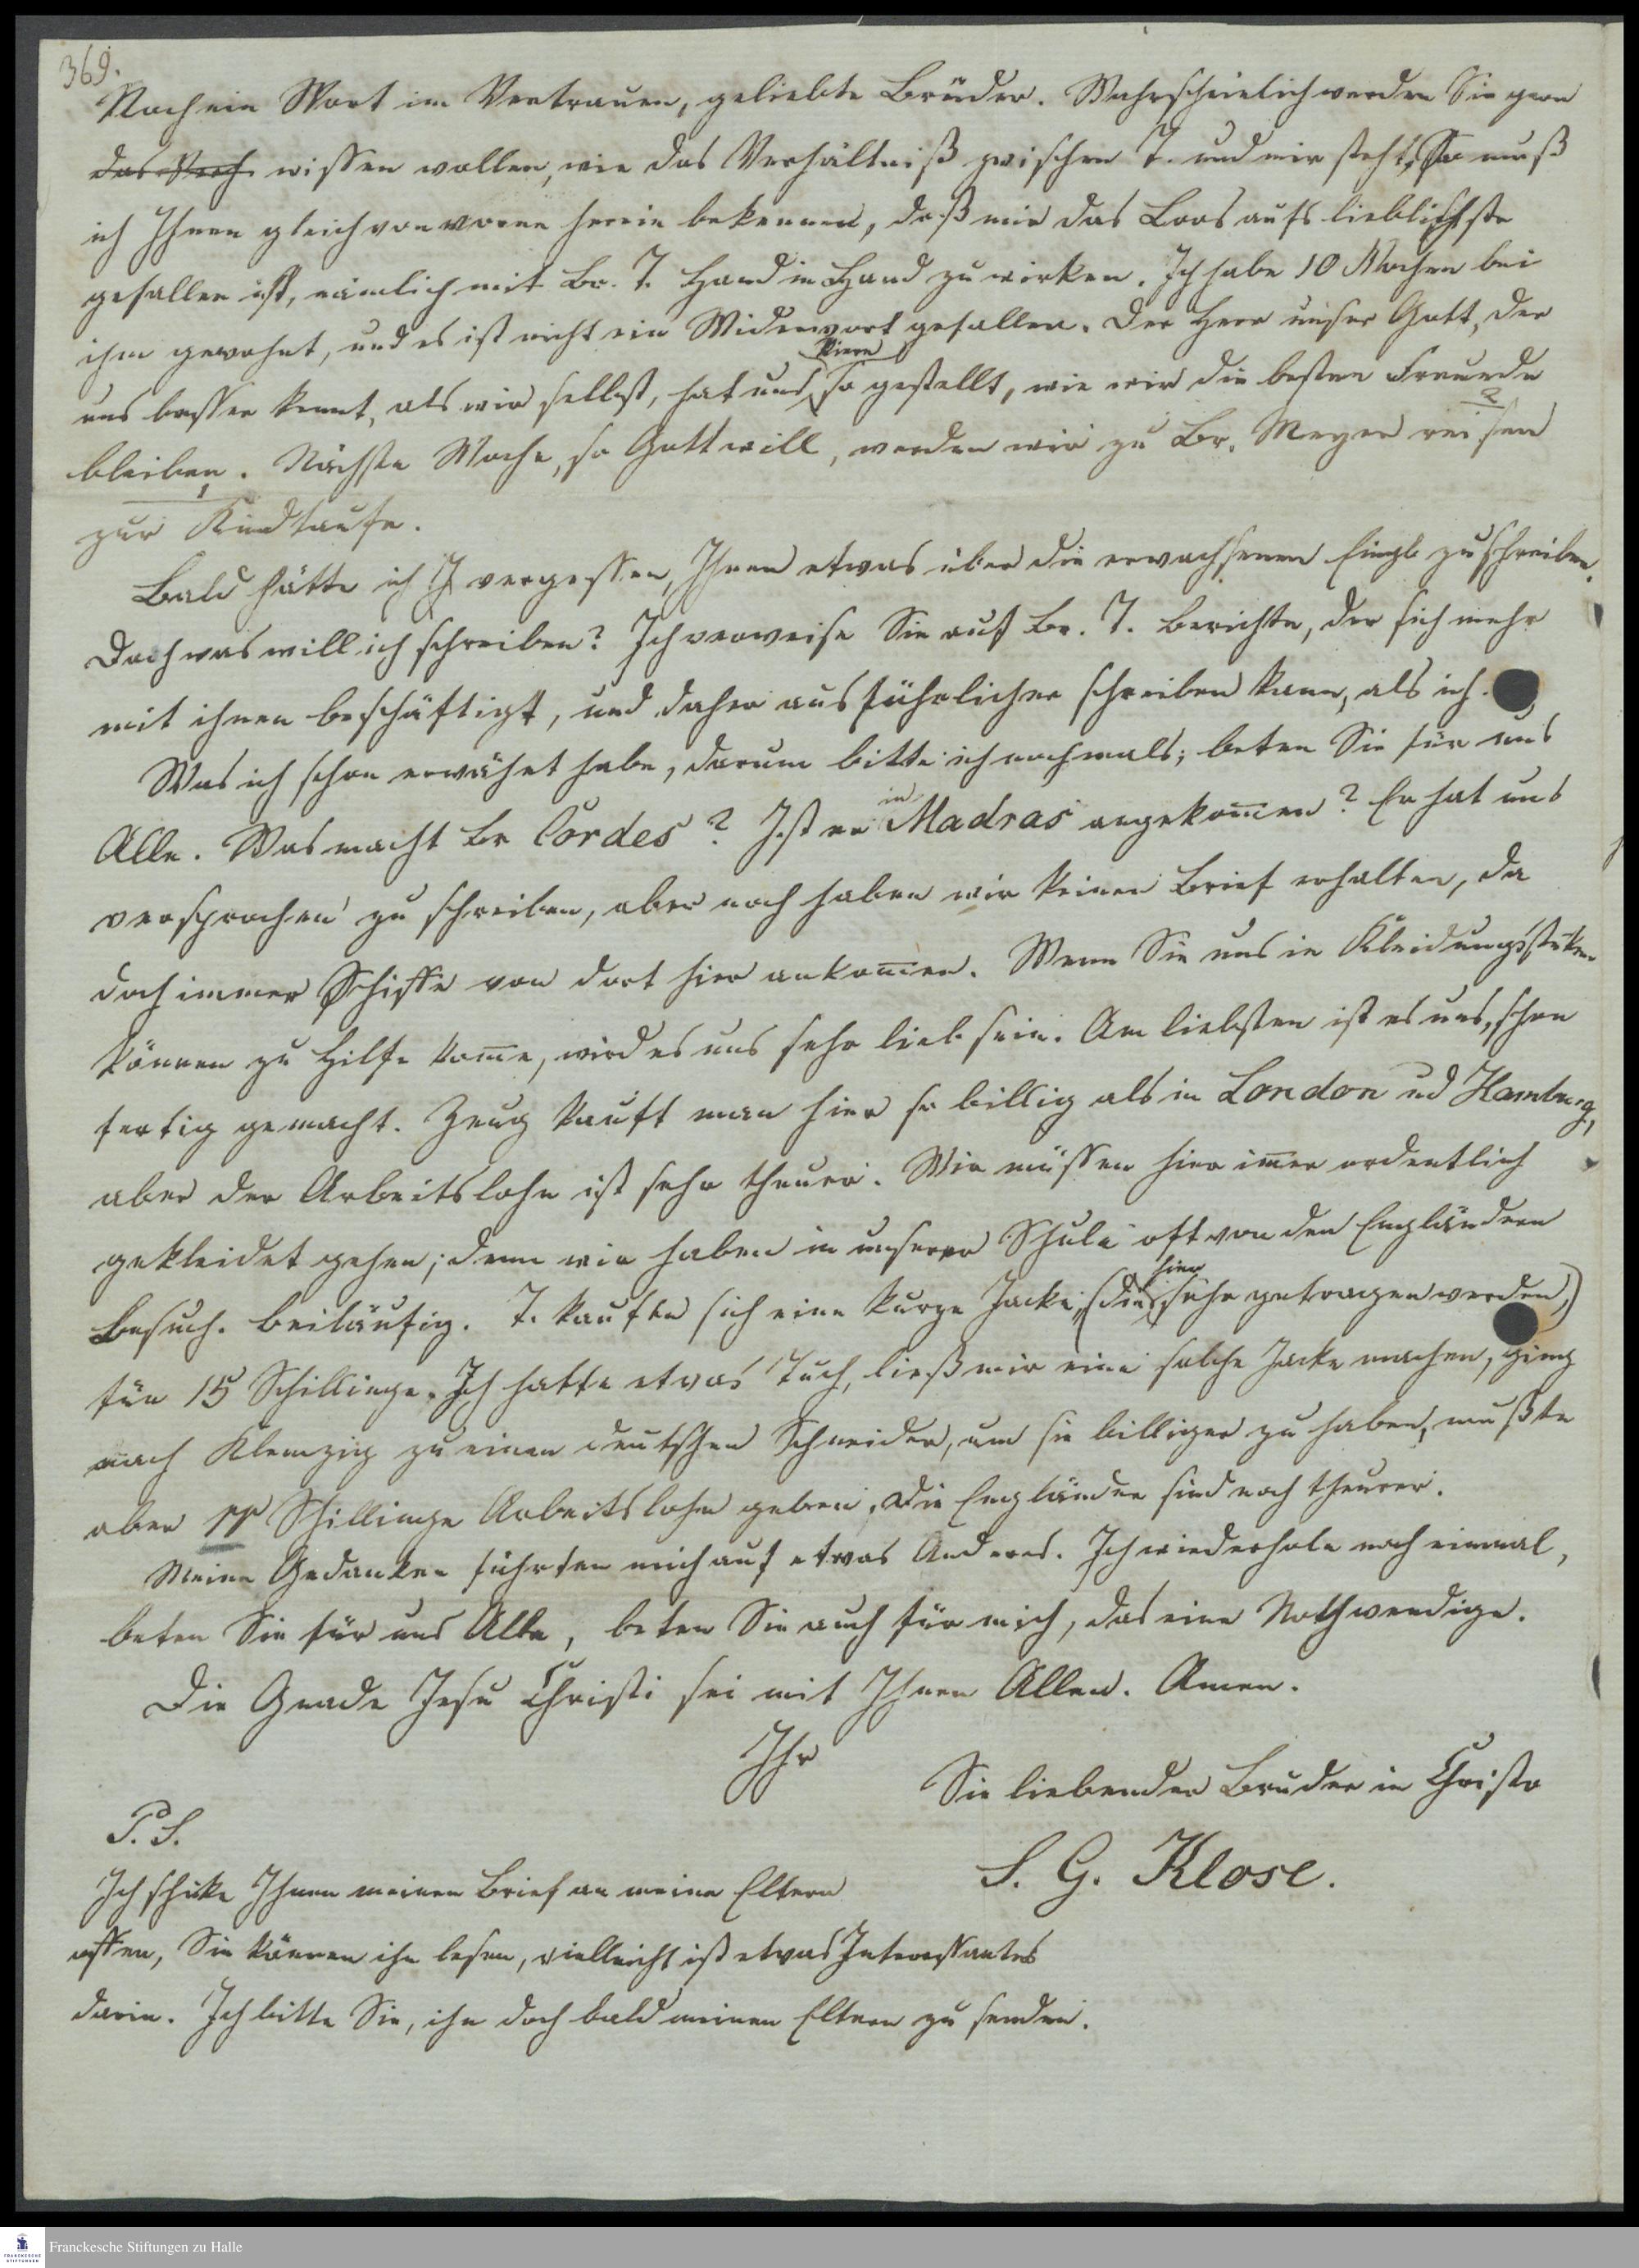 369.
Noch ein Wort im Vertrauen, geliebte Brüder. Wahrscheinlich werden Sie gern
wissen wollen, wie das Verhältniß zwischen T. und mir steht, So muß
ich Ihnen gleich von vorne herein bekennen, daß mir das Loos aufs lieblichste
gefallen ist, nämlich mit Br. T. Hand in Hand zu wirken. Ich habe 10 Wochen bei
ihm gewohnt, und es ist nicht ein Widerwort gefallen. Der Herr unser Gott, der
uns besser kennt, als wir selbst, hat uns so gestellt, wie wir die besten Freunde
bleiben. Nächste Woche, so Gott will, werden wir zu Br. Meyer reisen
zur Kindtaufe.
Bald hätte ich vergessen, Ihnen etwas über die erwachsenen Eingb zu schreiben.
Doch was will ich schreiben? Ich verweise Sie auf Br. T. Berichte, der sich mehr
mit ihnen beschäftigt, und daher ausführlicher schreiben kann, als ich.
Was ich schon erwähnt habe, darum bitte ich nochmals; beten Sie für uns
Alle. Was macht Br Cordes? Ist er in Madras angekom̅en? Er hat uns
versprochen zu schreiben, aber noch haben wir keinen Brief erhalten, da
doch immer Schiffe von dort hier ankom̅en. Wenn Sie uns in Kleidungsstüken
können zu Hilfe kom̅e, wird es uns sehr lieb sein. Am liebsten ist es uns, schon
fertig gemacht. Zeug kauft man hier so billig als in London ud Hamburg,
aber der Arbeitslohn ist sehr theuer. Wir müssen hier im̅er ordentlich
gekleidet gehen; denn wir haben in unserer Schule oft von den Engländern
Besuch. Beiläufig. T. kaufte sich eine kurze Jacke, (die hier sehr getragen werden,)
für 15 Schillinge. Ich hatte etwas Tuch, ließ mir eine solche Jacke machen, ging
nach Klemzig zu einen deutschen Schneider, um sie billiger zu haben, mußte
aber Schillinge Arbeitslohn geben. Die Engländer sind noch theurer.
Meine Gedanken führten mich auf etwas Anderes. Ich wiederhole noch einmal,
beten Sie für uns Alle, beten Sie auch für mich, das eine Nothwendige.
Die Gnade Jesu Christi sei mit Ihnen Allen. Amen.
Ihr
Sie liebender Bruder in Christo
S. G. Klose.
P. S.
Ich schicke Ihnen meinen Brief an meine Eltern
offen, Sie können ihn lesen, vielleicht ist etwas Interessantes
darin. Ich bitte Sie, ihn doch bald meinen Eltern zu senden.
FRANCKESCHE STIFTUNGEN
Franckesche Stiftungen zu Halle